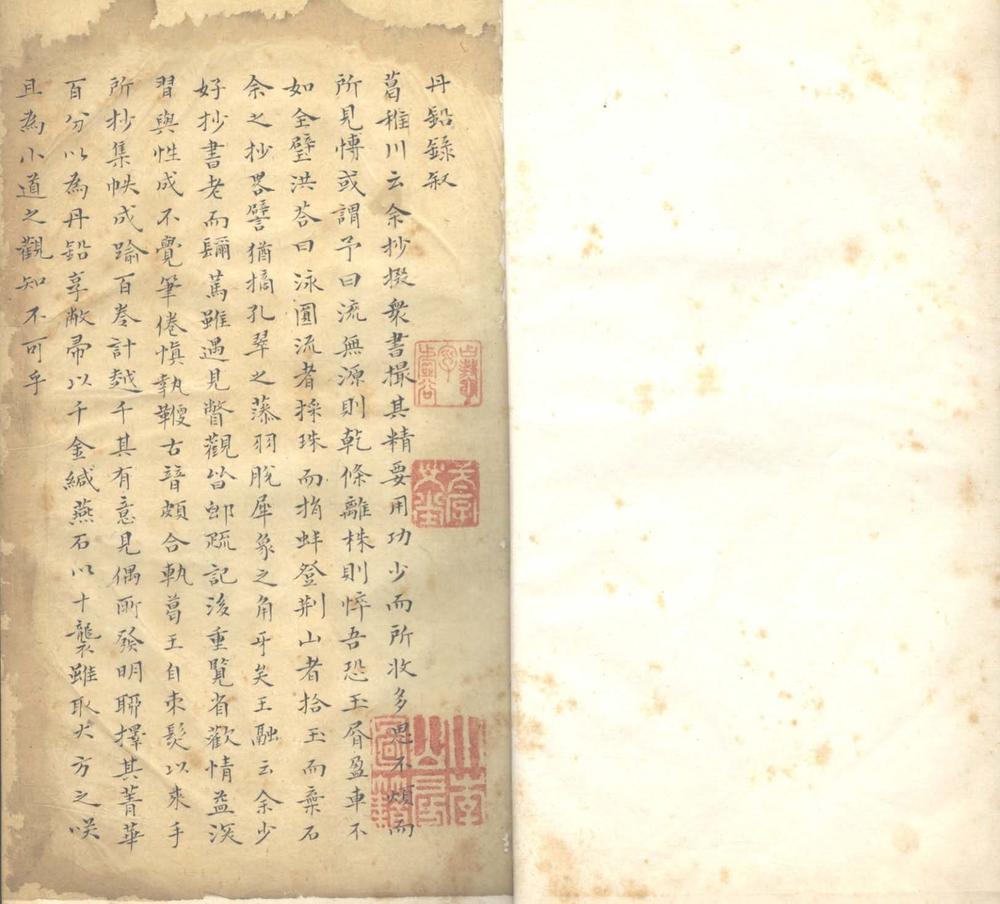 丹鉛錄敘
葛稚川云余抄掇衆書撮其精要用功少而所收多思不煩而
所見博或謂予曰流無源則乾條離株則悴吾恐玉屑盈車不
如全璧洪荅曰泳圓流者採珠而捐蚌登荆山者拾玉而棄石
余之抄畧譬猶摘孔翠之藻羽脫犀象之角牙矣王融云余少
好抄書老而彌篤雖遇見瞥觀皆即疏記後重覽省歡情益深
習與性成不覺筆倦愼執鞭古昔頗合軌葛王自束髮以來手
所抄集帙成踰百卷計越千其有意見偶所發明聊擇其菁華
百分以為丹鉛享敝帚以千金緘燕石以十襲雖取大方之咲
且為小道之觀知不可乎